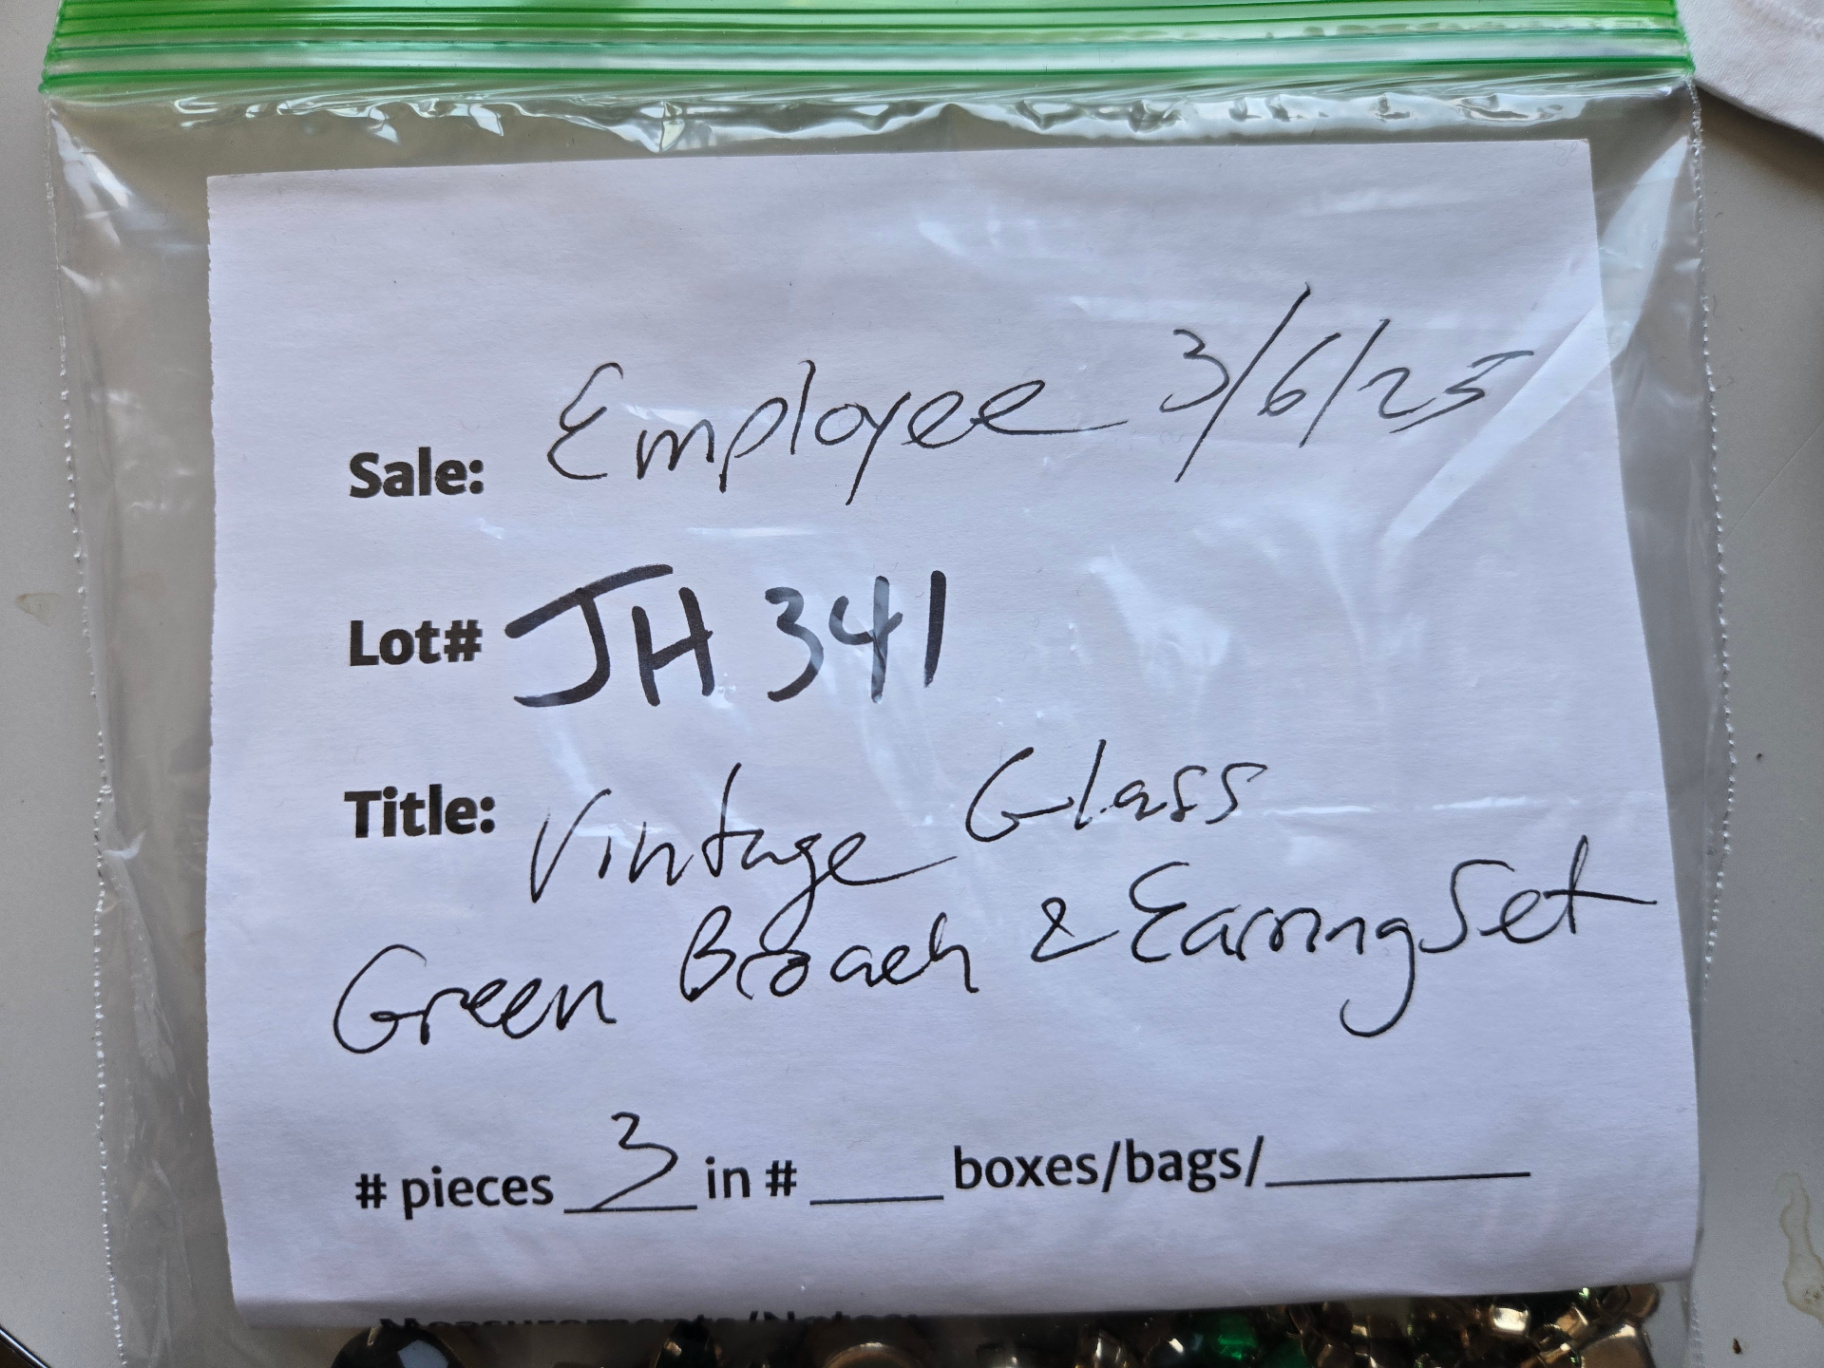 Sale: Employee 3/6/25
Lot# JH 341
Title: Vintage Glass
Green Broach & Earring Set
# pieces 3 in # ____ boxes/bags/________
Measurements/Notes: